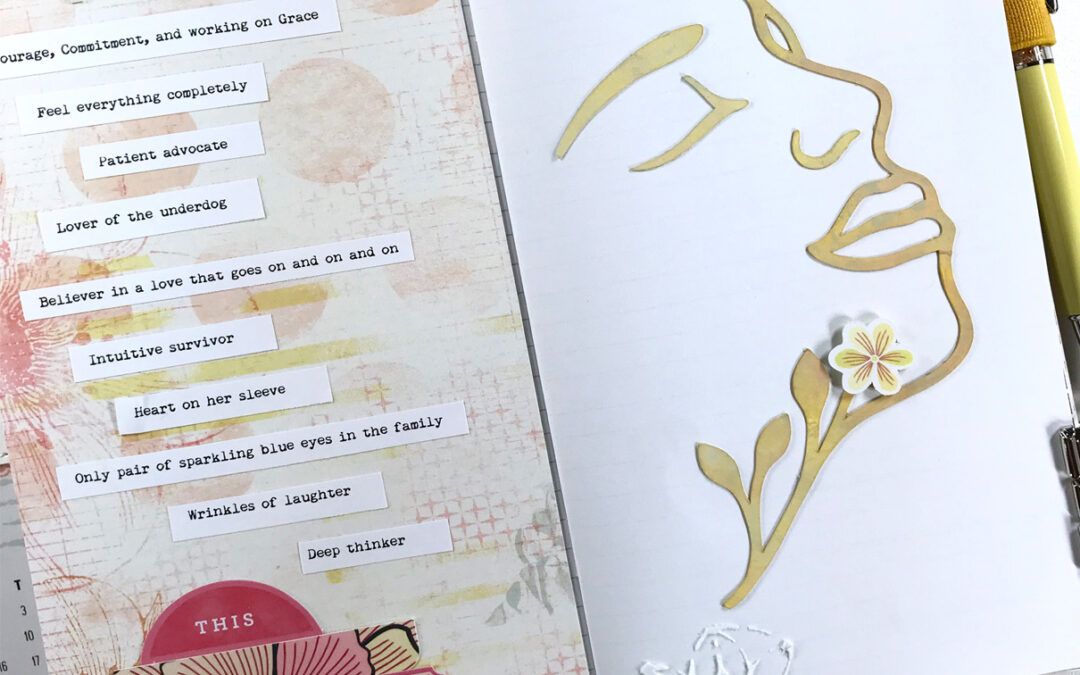 ourage, Commitment, and working on Grace
Feel everything completely
Patient advocate
Lover of the underdog
Believer in a love that goes on and on and on
Intuitive survivor
Heart on her sleeve
Only pair of sparkling blue eyes in the family
Wrinkles of laughter
Deep thinker
THIS
T
3
10
16 17